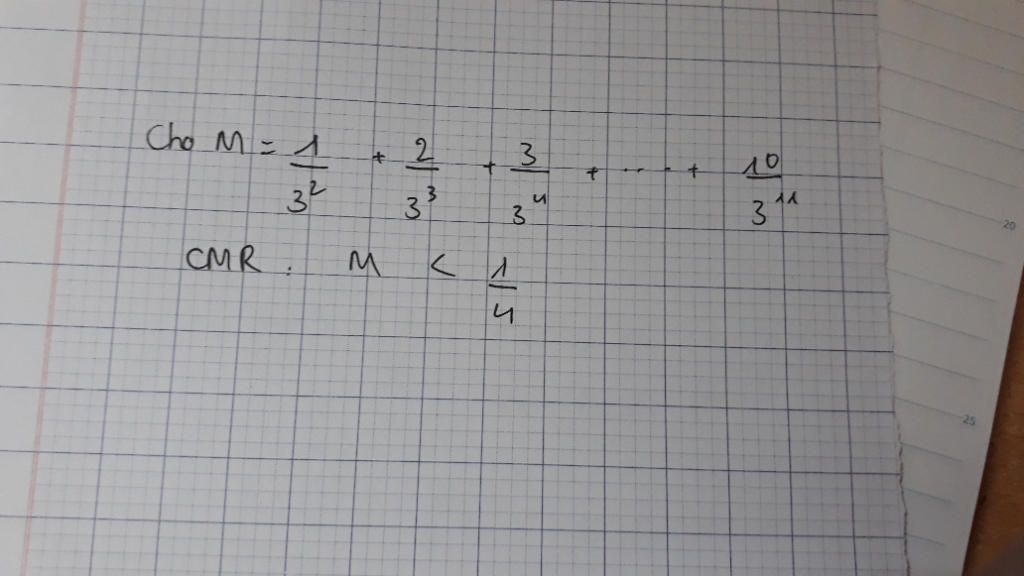 Cho M = 1/3² + 2/3³ + 3/3⁴ + ... + 10/3¹¹
CMR : M < 1/4
20
25